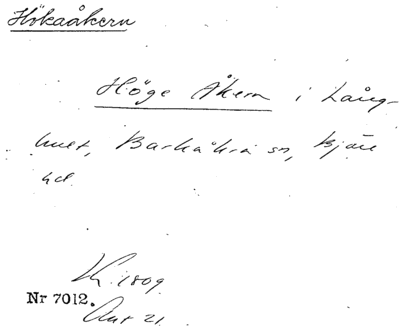 Hökaåkern
Höge Åkern i Lång-
hult, Barkåkra sn, Bjäre
hd.
1809
Nr 7012.
Akt 21.